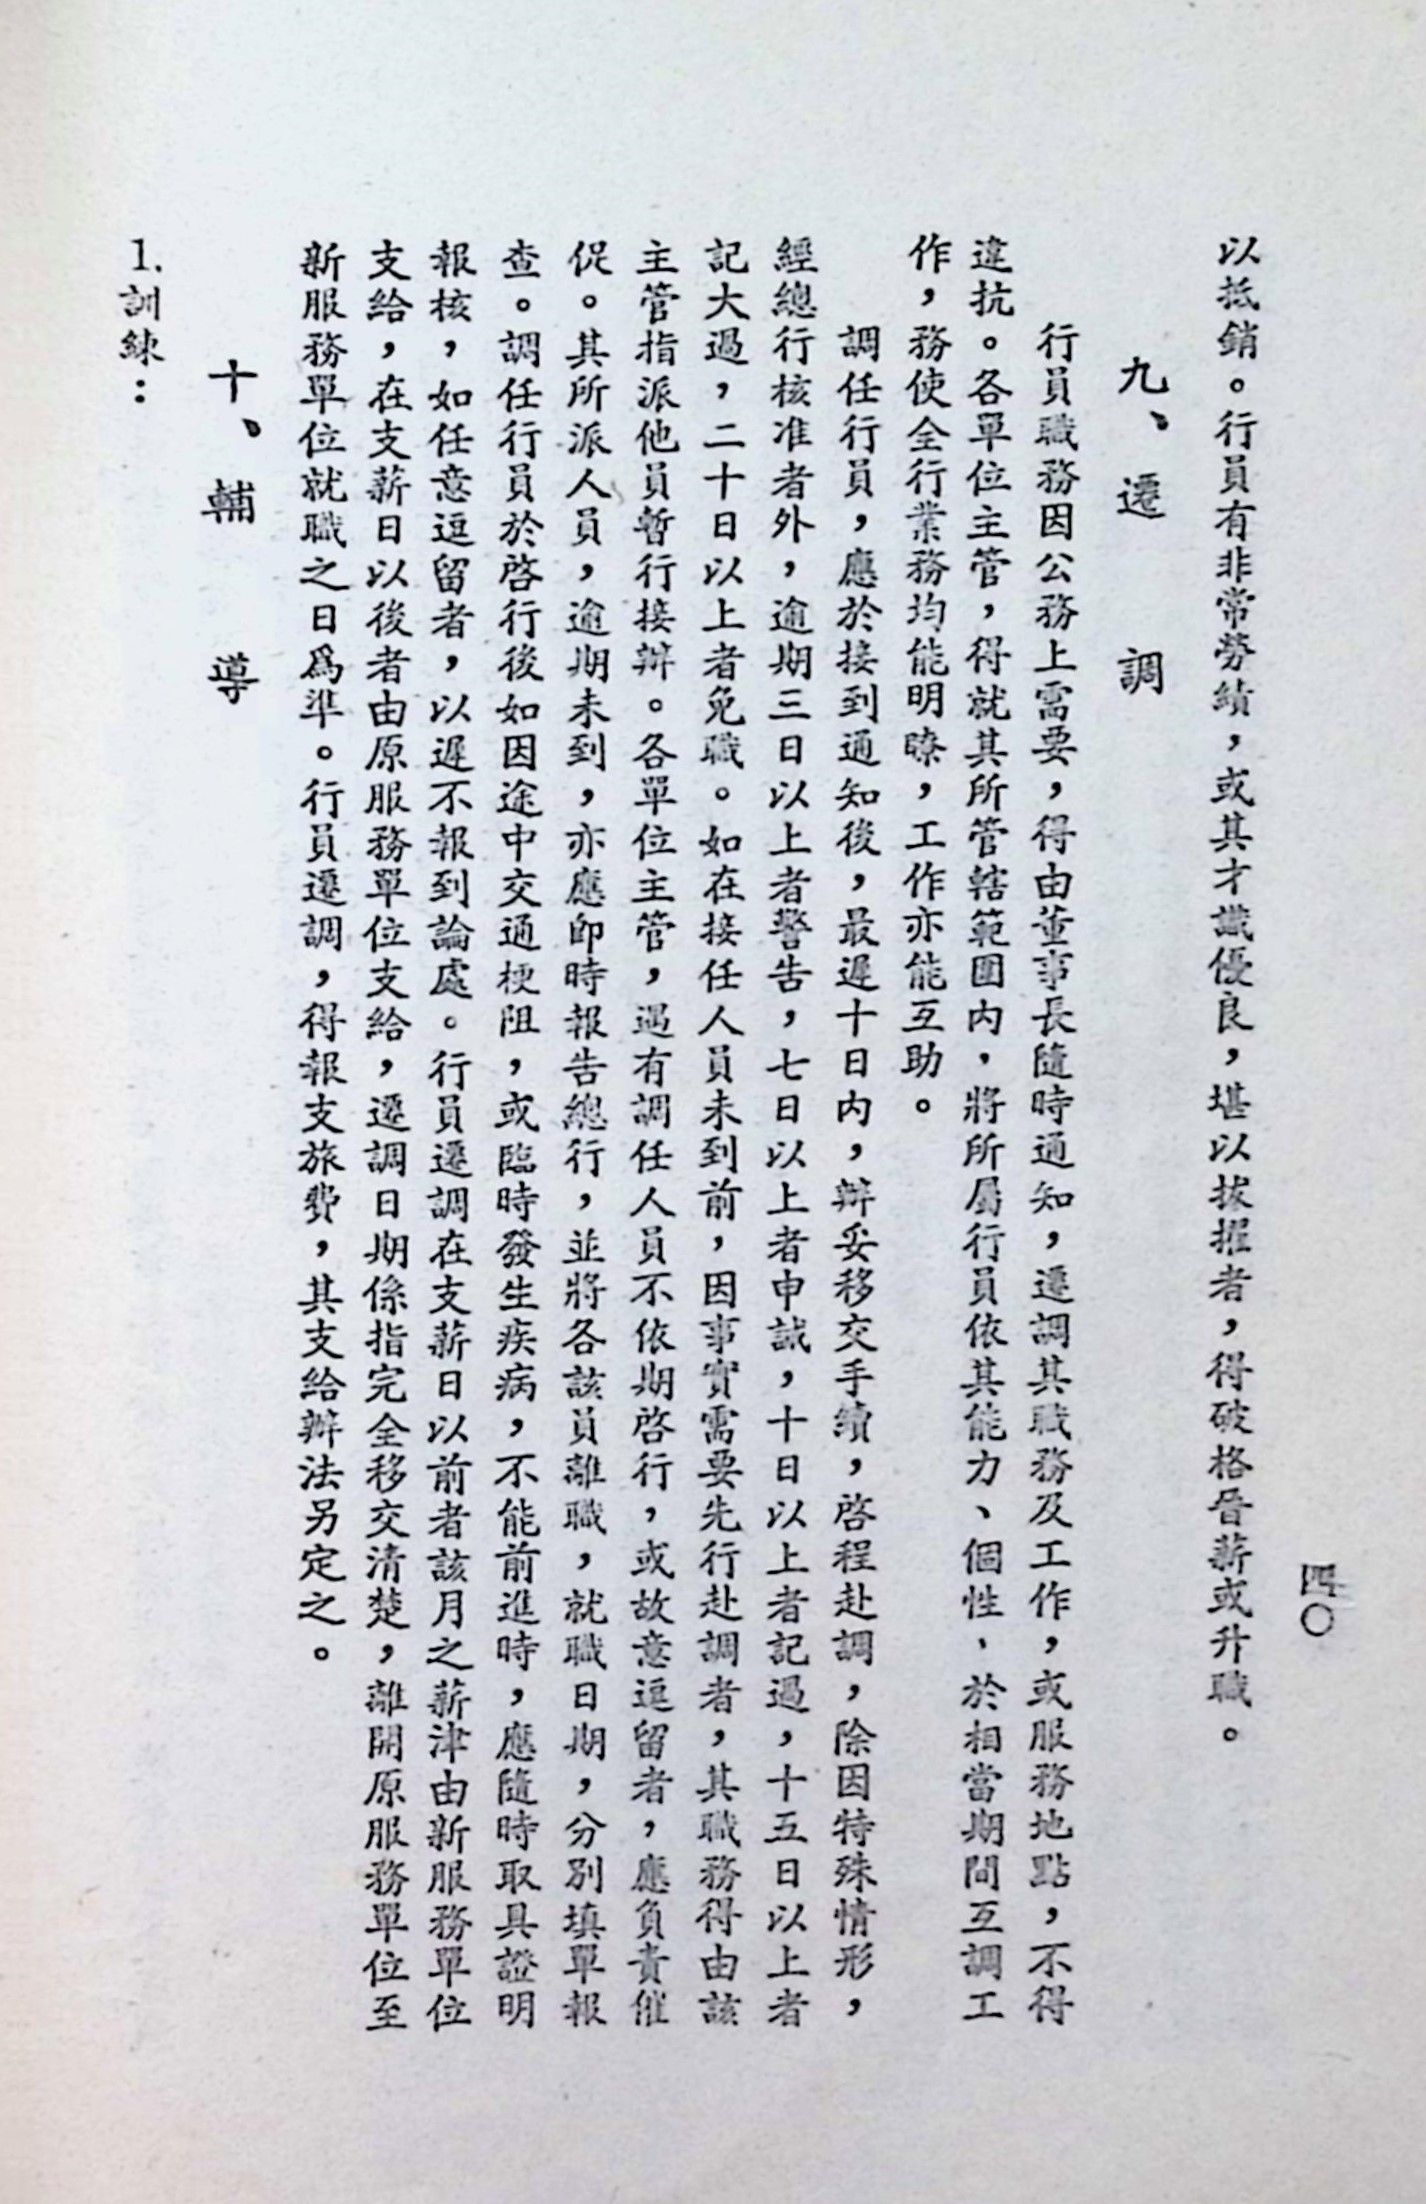 四〇
以抵銷。行員有非常勞績，或其才識優良，堪以拔擢者，得破格晉薪或升職。
九、遷調
行員職務因公務上需要，得由董事長隨時通知，遷調其職務及工作，或服務地點，不得
違抗。各單位主管，得就其所管轄範圍內，將所屬行員依其能力、個性、於相當期間互調工
作，務使全行業務均能明瞭，工作亦能互助。
調任行員，應於接到通知後，最遲十日內，辦妥移交手續，啓程赴調，除因特殊情形，
經總行核准者外，逾期三日以上者警告，七日以上者申誡，十日以上者記過，十五日以上者
記大過，二十日以上者免職。如在接任人員未到前，因事實需要先行赴調者，其職務得由該
主管指派他員暫行接辦。各單位主管，遇有調任人員不依期啓行，或故意逗留者，應負責催
促。其所派人員，逾期未到，亦應即時報告總行，並將各該員離職，就職日期，分別填單報
查。調任行員於啓行後如因途中交通梗阻，或臨時發生疾病，不能前進時，應隨時取具證明
報核，如任意逗留者，以遲不報到論處。行員遷調在支薪日以前者該月之薪津由新服務單位
支給，在支薪日以後者由原服務單位支給，遷調日期係指完全移交清楚，離開原服務單位至
新服務單位就職之日爲準。行員遷調，得報支旅費，其支給辦法另定之。
十、輔導
1.訓練：